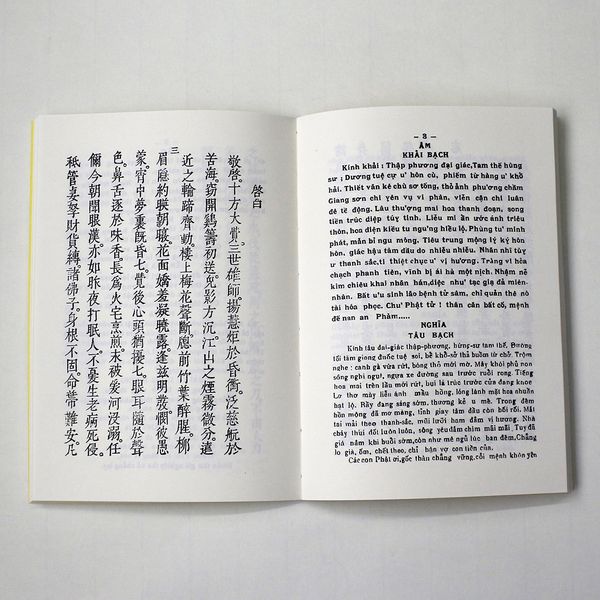 啓白
敬啓。十方大覺。三世雄師。揚慧炬於昏衢。泛慈航於
苦海。竊開鷄籌初送。兔影方沉。江山之煙霧微分。遠
近之輪蹄齊動。樓上梅花聲斷。窓前竹葉醉醒。柳
三
眉隱約映朝暾。花面嬌羞凝曉露。逢兹明發。憫彼愚
蒙。宵中夢裏既昏七。覺後心頭猶擾七。眼耳隨於聲
色。鼻舌逐於味香。長爲火宅烹煎。未被爰河沒溺。任
儞今朝開眼漢。亦如昨夜打眠人。不憂生老病死侵。
秪管妻孥財貨縛。諸佛子。身根不固。命蒂難安。凡
— 3 —
ÂM
KHẢI BẠCH
Kính khải : Thập phương đại giác,Tam thế hùng
sư ; Dương tuệ cự ư hôn cù, phiếm từ hàng ư khổ
hải. Thiết văn kê chù sơ tống, thỏ ảnh phương chầm
Giang sơn chi yên vụ vi phân, viễn cận chi luân
đề tề động. Lâu thượng mai hoa thanh đoạn, song
tiền trúc diệp túy tinh. Liễu mi ẩn ước ánh triêu
thôn, hoa diện kiều tu ngưng hiểu lộ. Phùng tư minh
phát, mẫn bỉ ngu mông. Tiêu trung mộng lý ký hôn
hôn, giác hậu tâm đầu do nhiễu nhiễu. Nhãn nhĩ tùy
ư thanh sắc, tỉ thiệt chục ư vị hương. Tràng vi hỏa
chạch phanh tiên, vĩnh bị ái hà một nịch. Nhậm nễ
kim chiêu khai nhãn hán, diệc như tạc giạ đả miên-
nhân. Bất ưu sinh lão bệnh tử sâm, chỉ quản thê nô
tài hóa phọc. Chư Phật tử ! thân căn bất cố, mệnh
đế nan an Phàm.....
NGHĨA
TÂU BẠCH
Kính tâu đại-giác thập-phương, hùng-sư tam thế, Đường
tối lầm giong đuốc tuệ soi, bể khổ-sở thả buồm từ chở. Trộm
nghe : canh gà vừa rứt, bóng thỏ mới mờ. Mây khói phủ non
sông nghi ngút, ngựa xe đường sau trước ruổi rong. Tiếng
hoa mai trên lầu mới rứt, bụi lá trúc trước cửa đang
Lơ thơ mày liễu ánh mầu hồng, lóng lánh mặt hoa nhuần
hạt lộ. Rầy đang sáng sớm, thương kẻ u mê. Trong đêm
hồn mộng đã mơ màng, tỉnh giay tâm đầu còn bối rối. Mắt
tai mải theo thanh-sắc, mũi lưỡi ham đắm vị hương. Nhà
cháy thùi đốt luôn luôn, sông yêu đắm chìm mãi mãi Tuy đã
giá nắm khi buổi sớm, còn như mê ngủ lúc ban đêm, Chẳng
lo già, ốm, chết theo, chỉ bận vợ con tiền của.
Các con Phật ơi, gốc thân chẳng vững, cội mệnh khôn yên